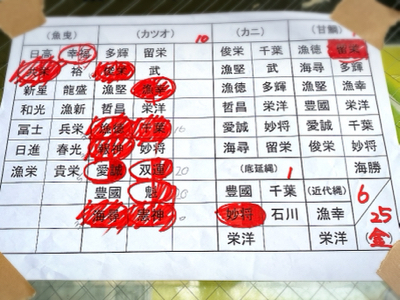 (魚曳) (カツオ) 10 (カニ) (甘鯛)
日高 幸福 多輝 留栄 俊栄 千葉 漁徳 留栄
裕 武 漁堅 武 海尋 多輝
新星 龍盛 漁堅 漁幸 多輝 漁堅 漁徳 漁幸
和光 漁新 哲昌 栄洋 哲昌 栄洋 豊國 栄洋
冨士 兵栄 漁徳 千葉 愛誠 妙将 愛誠 千葉
日進 春光 妙将 海尋 留栄 栄洋 妙将
漁栄 貴栄 愛誠 双運 20 (底延縄) 1 海勝
豊國 魁 豊國 千葉 (近代縄) 6
海尋 憲神 妙将 石川 漁幸 25
栄洋 栄洋 (金)